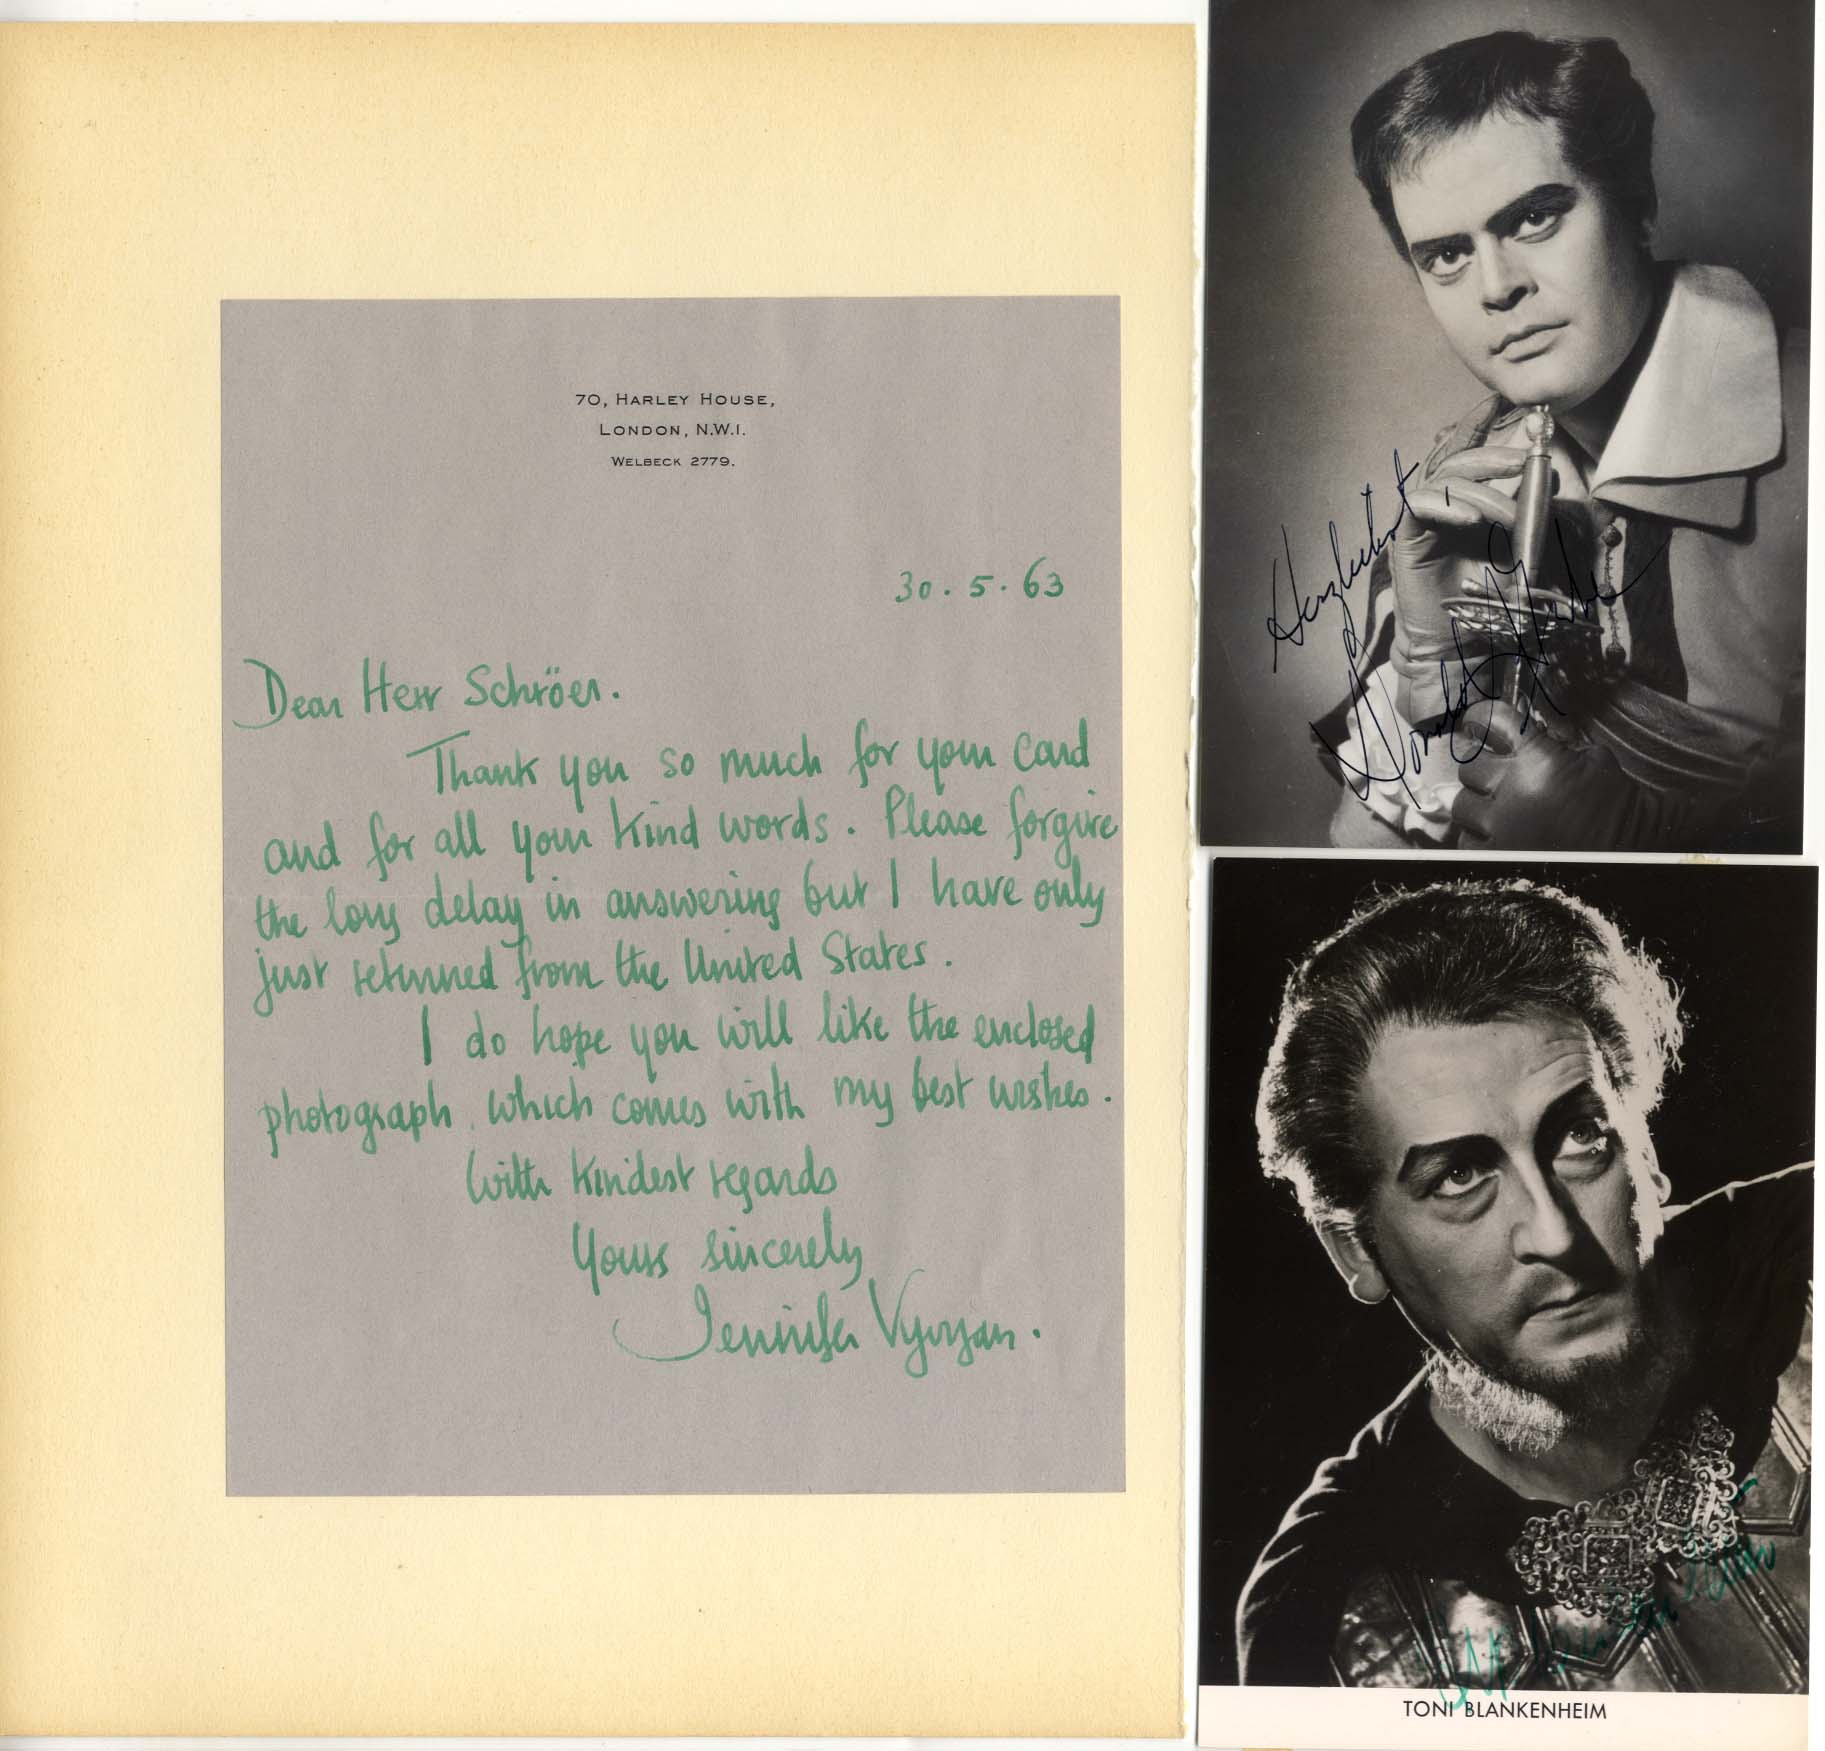 70, HARLEY HOUSE,
LONDON, N.W.1.
WELBECK 2779.
30.5.63
Dear Herr Schröer.
Thank you so much for your card
and for all your kind words. Please forgive
the long delay in answering but I have only
just returned from the United States.
I do hope you will like the enclosed
photograph, which comes with my best wishes.
With kindest regards
Yours sincerely
Jennifer Vyvyan.
Herzlichst,
Donald Grobe
TONI BLANKENHEIM